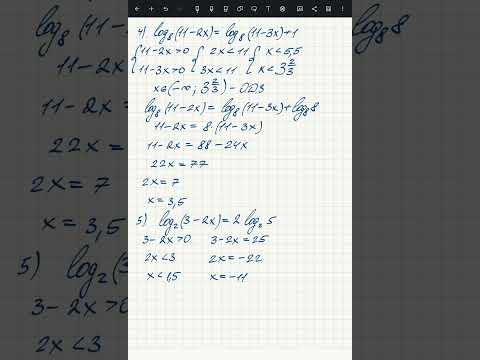 4) log₈(11-2x) = log₈(11-3x)+1
{11-2x>0 {2x<11 {x<5,5
{11-3x>0 {3x<11 {x<3 2/3
x∈(-∞; 3 2/3) - ОДЗ
log₈(11-2x) = log₈(11-3x)+log₈8
11-2x = 8·(11-3x)
11-2x = 88-24x
22x = 77
2x = 7
x = 3,5
5) log₂(3-2x) = 2 log₂5
3-2x>0 3-2x=25
2x<3 2x=-22
x<1,5 x=-11